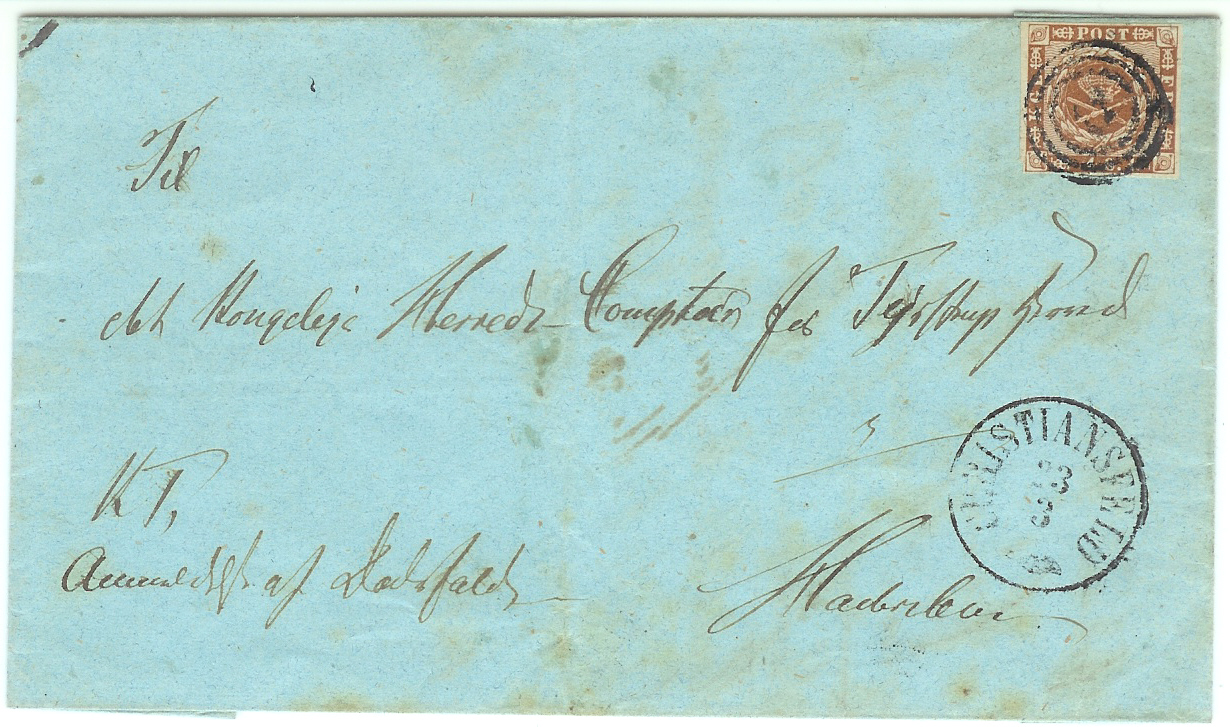 POST
Til
det Kongelige Herreds-Comptoir for Tyrstrup Herred
CHRISTIANSFELD
K T,
Anmeldelse af Dødsfald
Haderslev